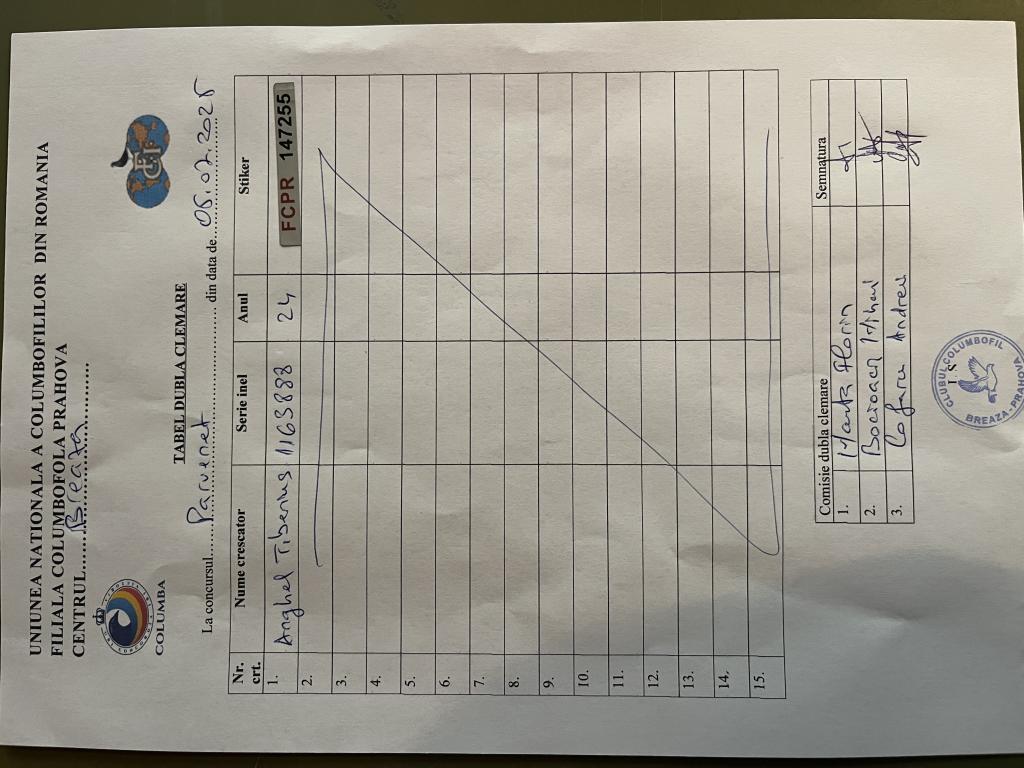 UNIUNEA NATIONALA A COLUMBOFILILOR DIN ROMANIA
FILIALA COLUMBOFOLA PRAHOVA
CENTRUL.....Breaza.....
COLUMBA
TABEL DUBLA CLEMARE
La concursul.....Parvenet..... din data de.....05.07.2025
Nr. crt. Nume crescator Serie inel Anul Stiker
1. Anghel Tiberius 1163888 24 FCPR 147255
2.
3.
4.
5.
6.
7.
8.
9.
10.
11.
12.
13.
14.
15.
Comisie dubla clemare Semnatura
1. Florin
2. Mihail
3. Andrei
CLUBUL COLUMBOFIL
BREAZA - PRAHOVA